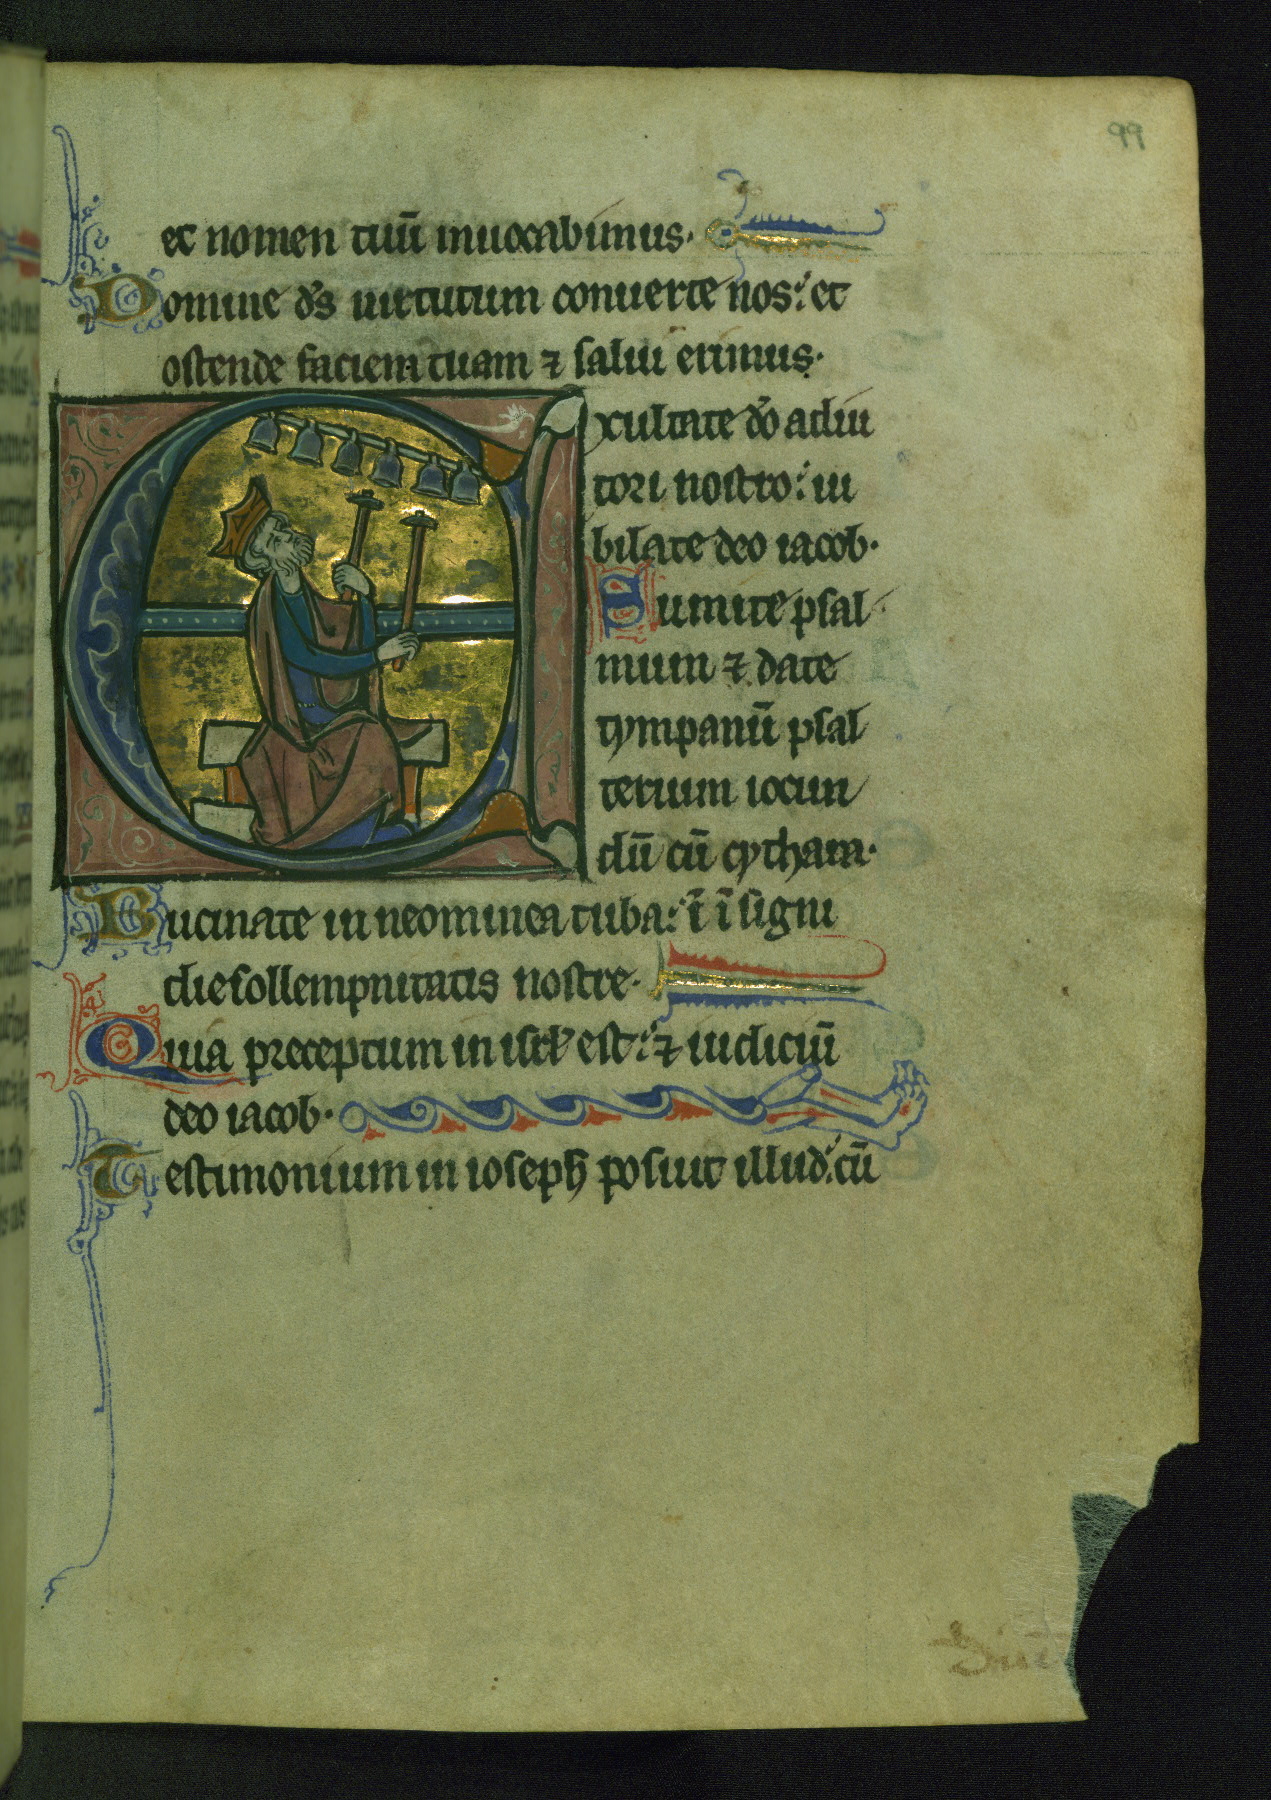 99
et nomen tuū inuocabimus.
Domine d̄s uirtutum conuerte nos: et
ostende faciem tuam ⁊ salui erimus.
Exultate dō adiu
tori nostro: iu
bilate deo iacob.
Sumite psal
mum ⁊ date
tympanū psal
terium iocun
dū cū cythara.
Bucinate in neominea tuba: ī ī signi
die sollempnitatis nostre.
Quia preceptum in isrl̄ est: ⁊ iudiciū
deo iacob.
Testimonium in ioseph posuit illud: cū